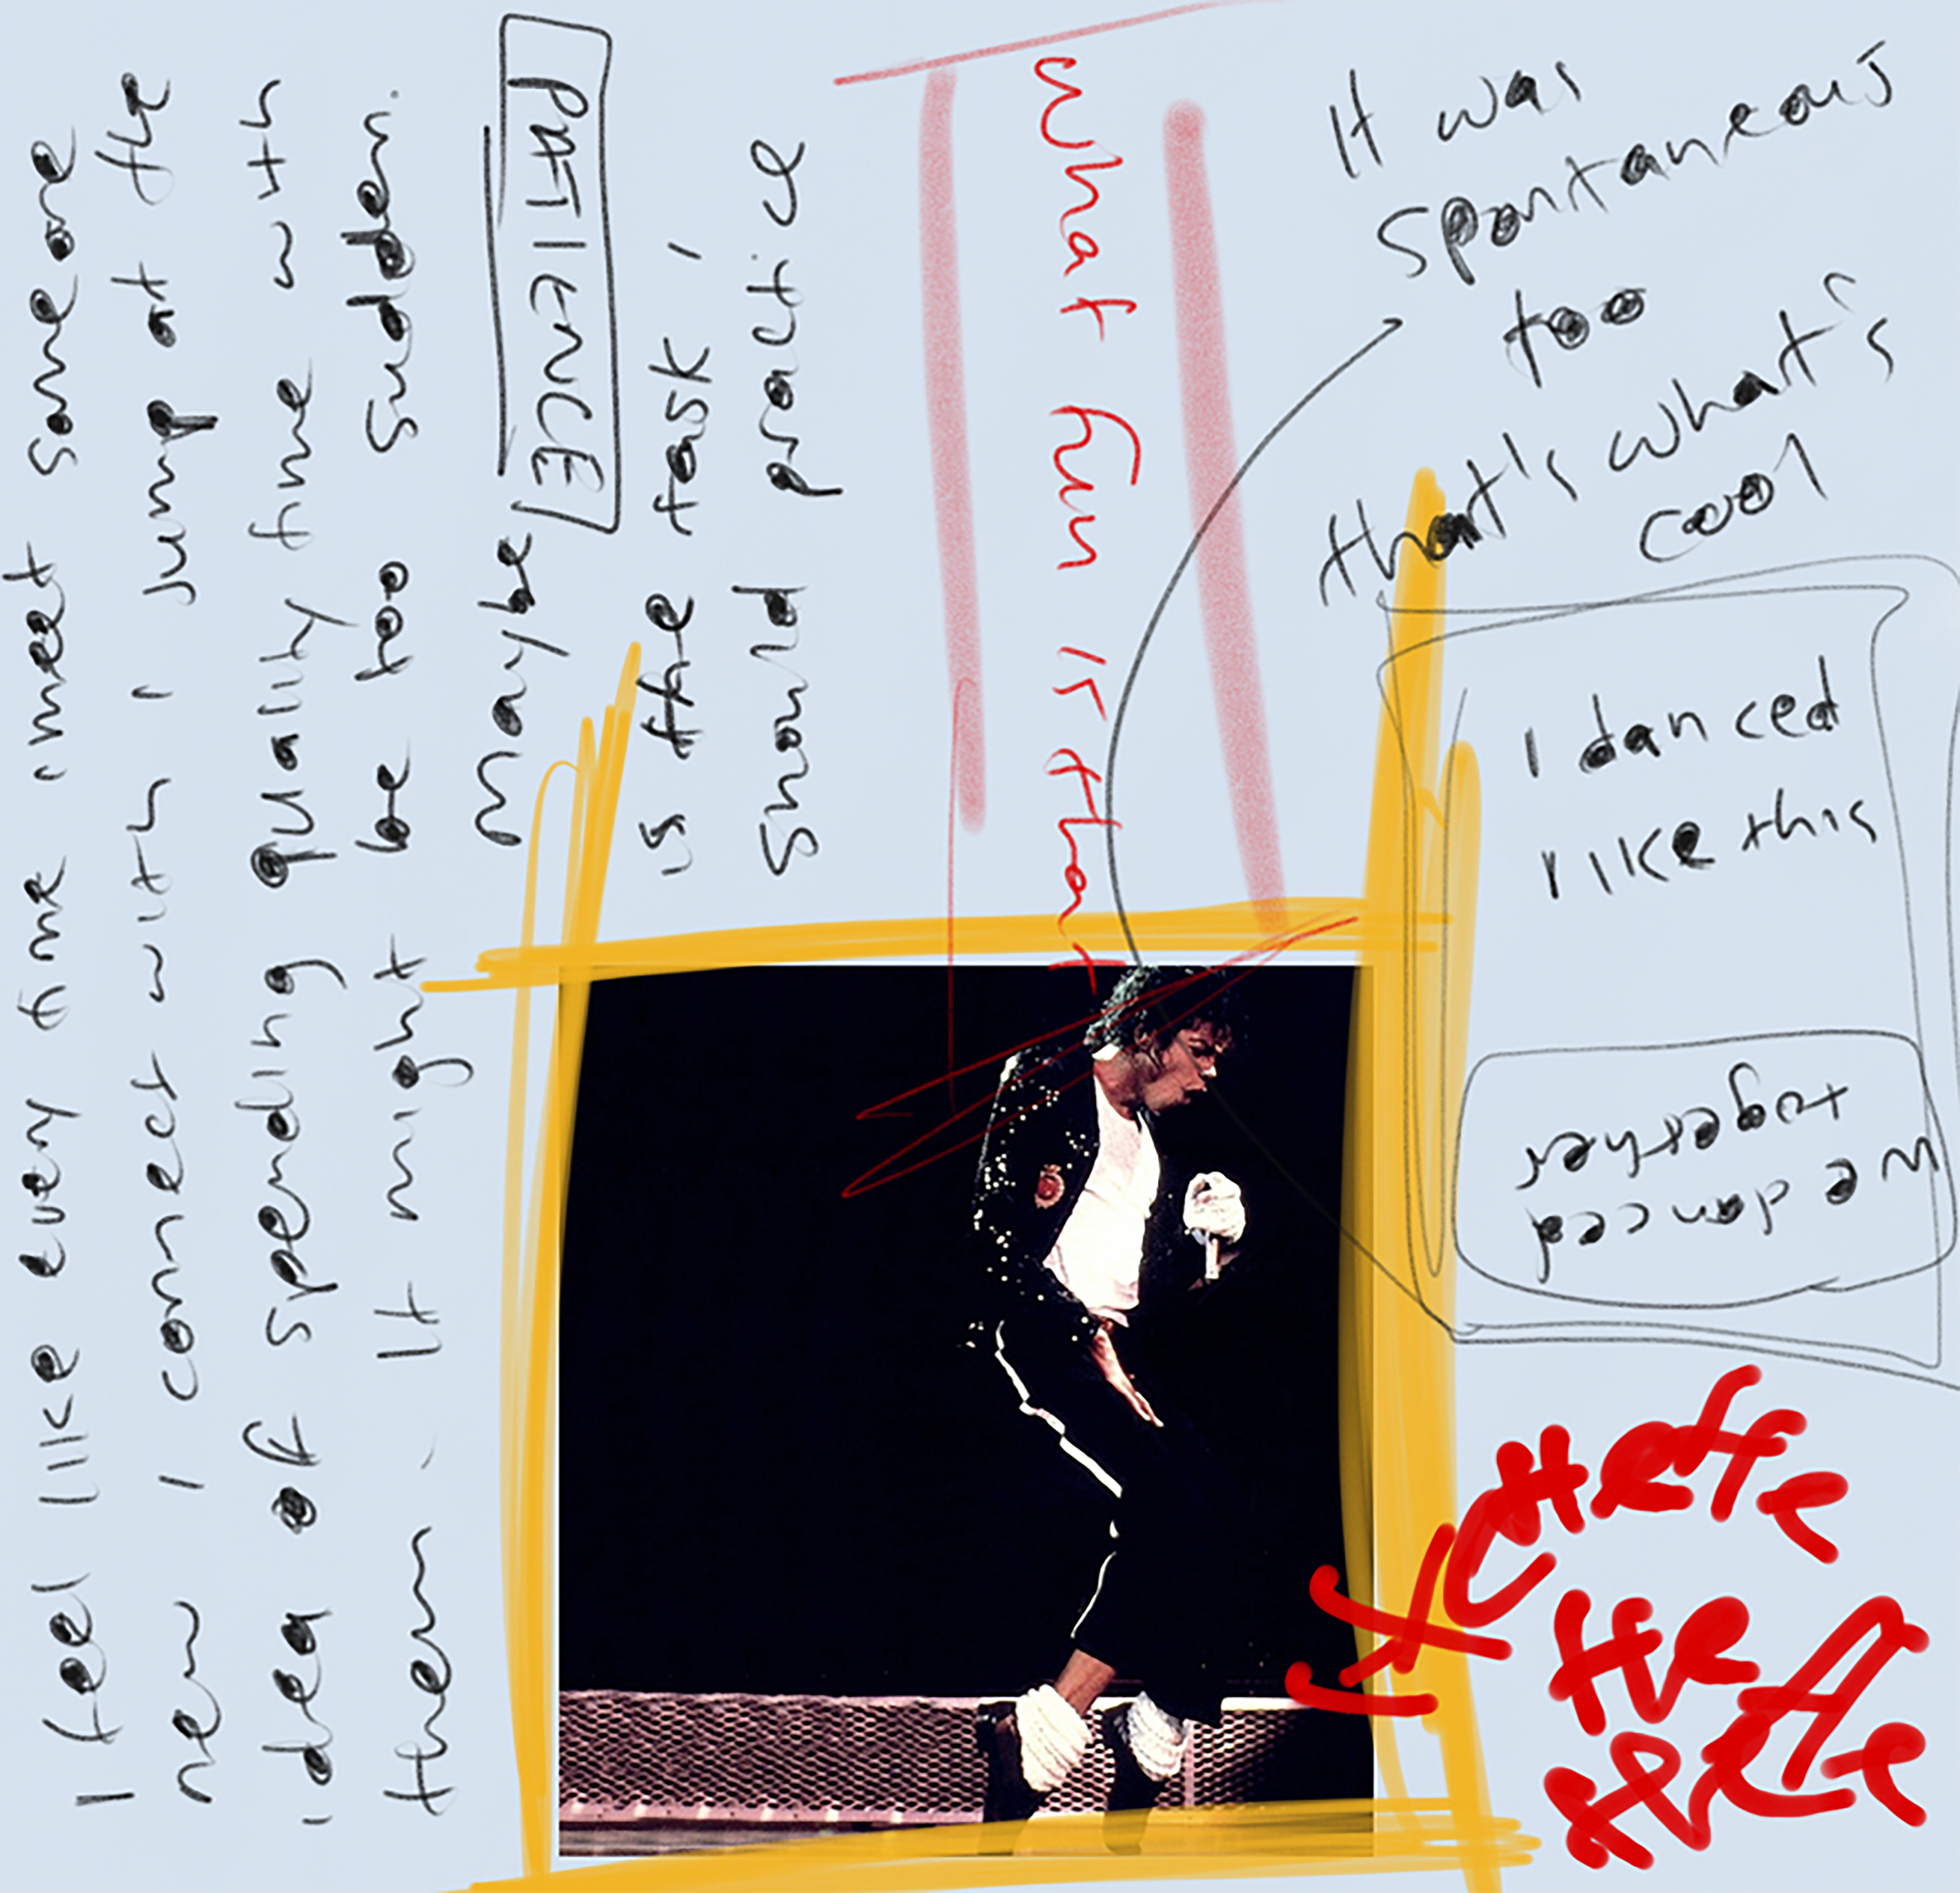 I feel like every time i meet someone
new I connect with I jump at the
idea of spending quality time with
them. It might be too sudden.
maybe PATIENCE
is the task I
should practice
what fun is that
It was
spontaneous
too
that's what's
cool
I danced
like this
we danced
together
HeHe
He
HeHe